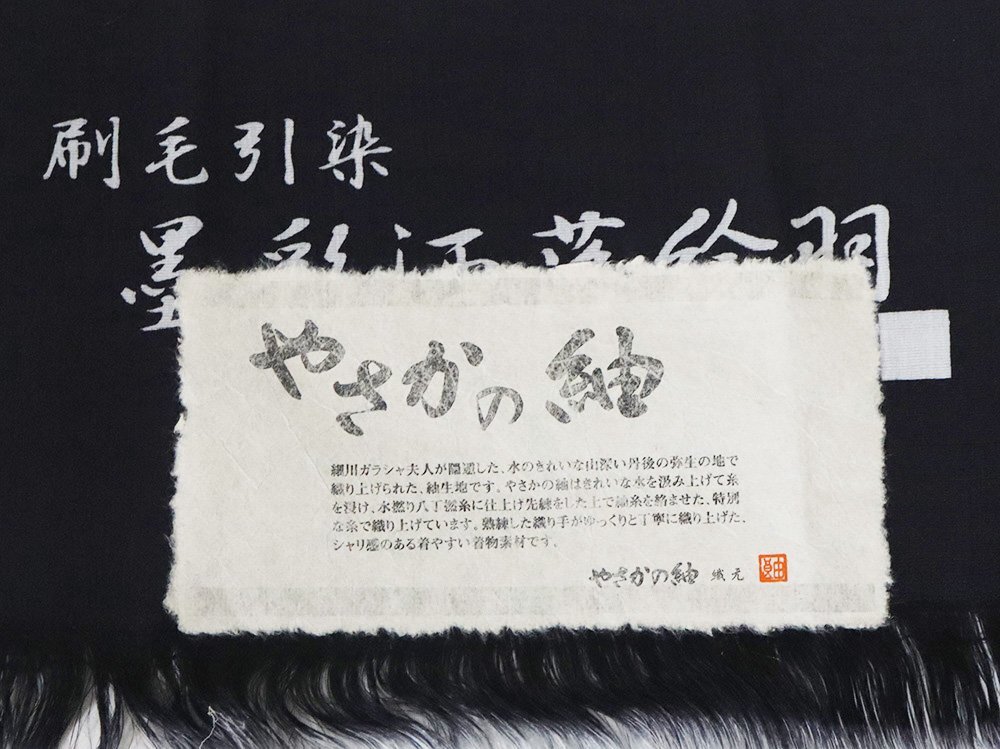 刷毛引染
墨彩洒落絵羽
やさかの紬
細川ガラシャ夫人が隠遁した、水のきれいな山深い丹後の弥生の地で
織り上げられた、紬生地です。やさかの紬はきれいな水を汲み上げて糸
を浸け、水撚り八丁撚糸に仕上げ先練をした上で紬糸を絡ませた、特別
な糸で織り上げています。熟練した織り手がゆっくりと丁寧に織り上げた、
シャリ感のある着やすい着物素材です。
やさかの紬 織元